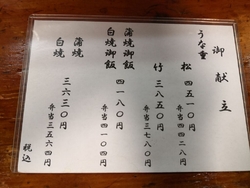 御献立
うな重
松 四五一〇円
弁当四四二八円
竹 三八五〇円
弁当三七八〇円
蒲焼御飯
白焼御飯
四一八〇円
弁当四一〇四円
蒲焼
白焼
三六三〇円
弁当三五六四円
税込